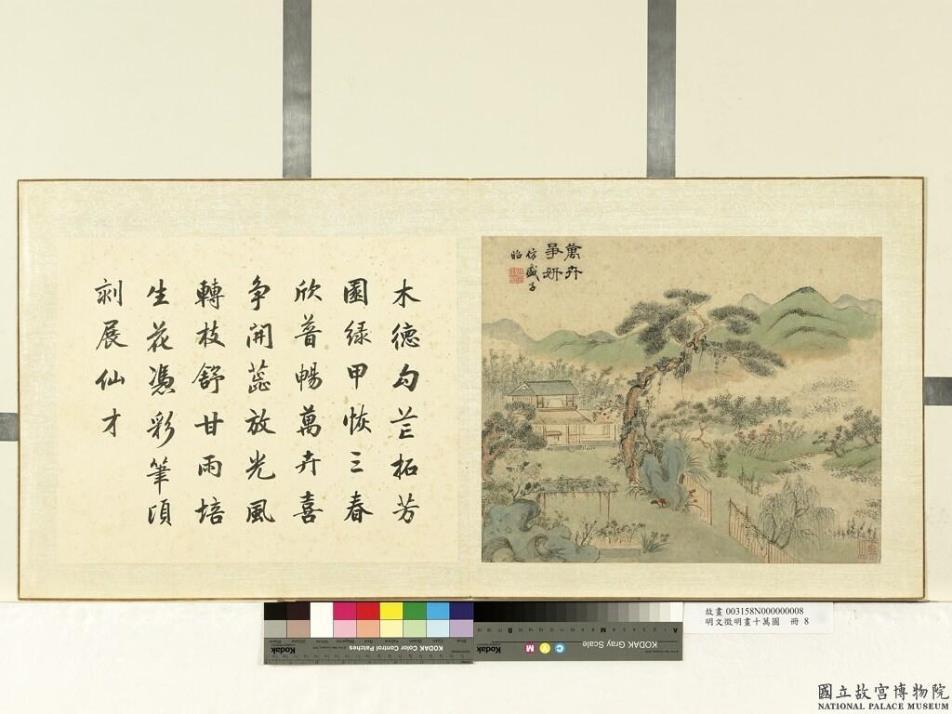 萬卉
爭妍
仿盛子
昭
木德勾芒拓芳
園綠甲恢三春
欣普暢萬卉喜
争開蕊放光風
轉枝舒甘雨培
生花憑彩筆頃
刻展仙才
Kodak
KODAK Color Control Patches
Kodak
KODAK Gray Scale
C Y M
A
M
B
故畫 003158N000000008
明文徵明畫十萬圖 冊 8
國立故宮博物院
NATIONAL PALACE MUSEUM